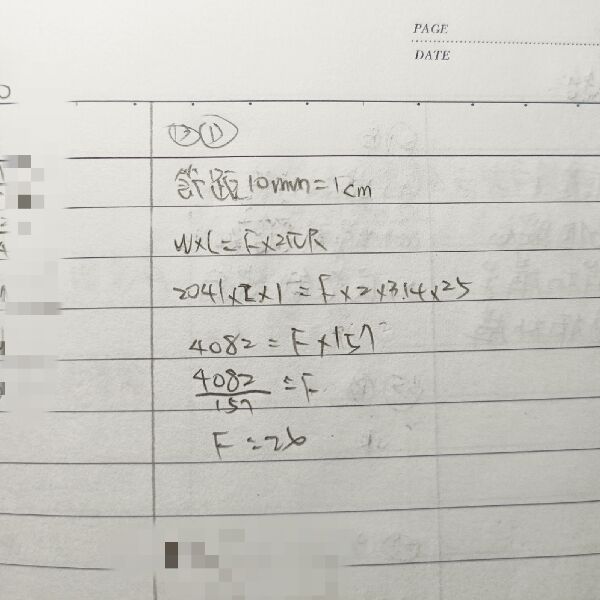 PAGE
DATE
13 ①
節距10mm=1cm
W×L=F×2πR
2041×2×1=F×2×3.14×25
4082=F×157
4082/157=F
F=26